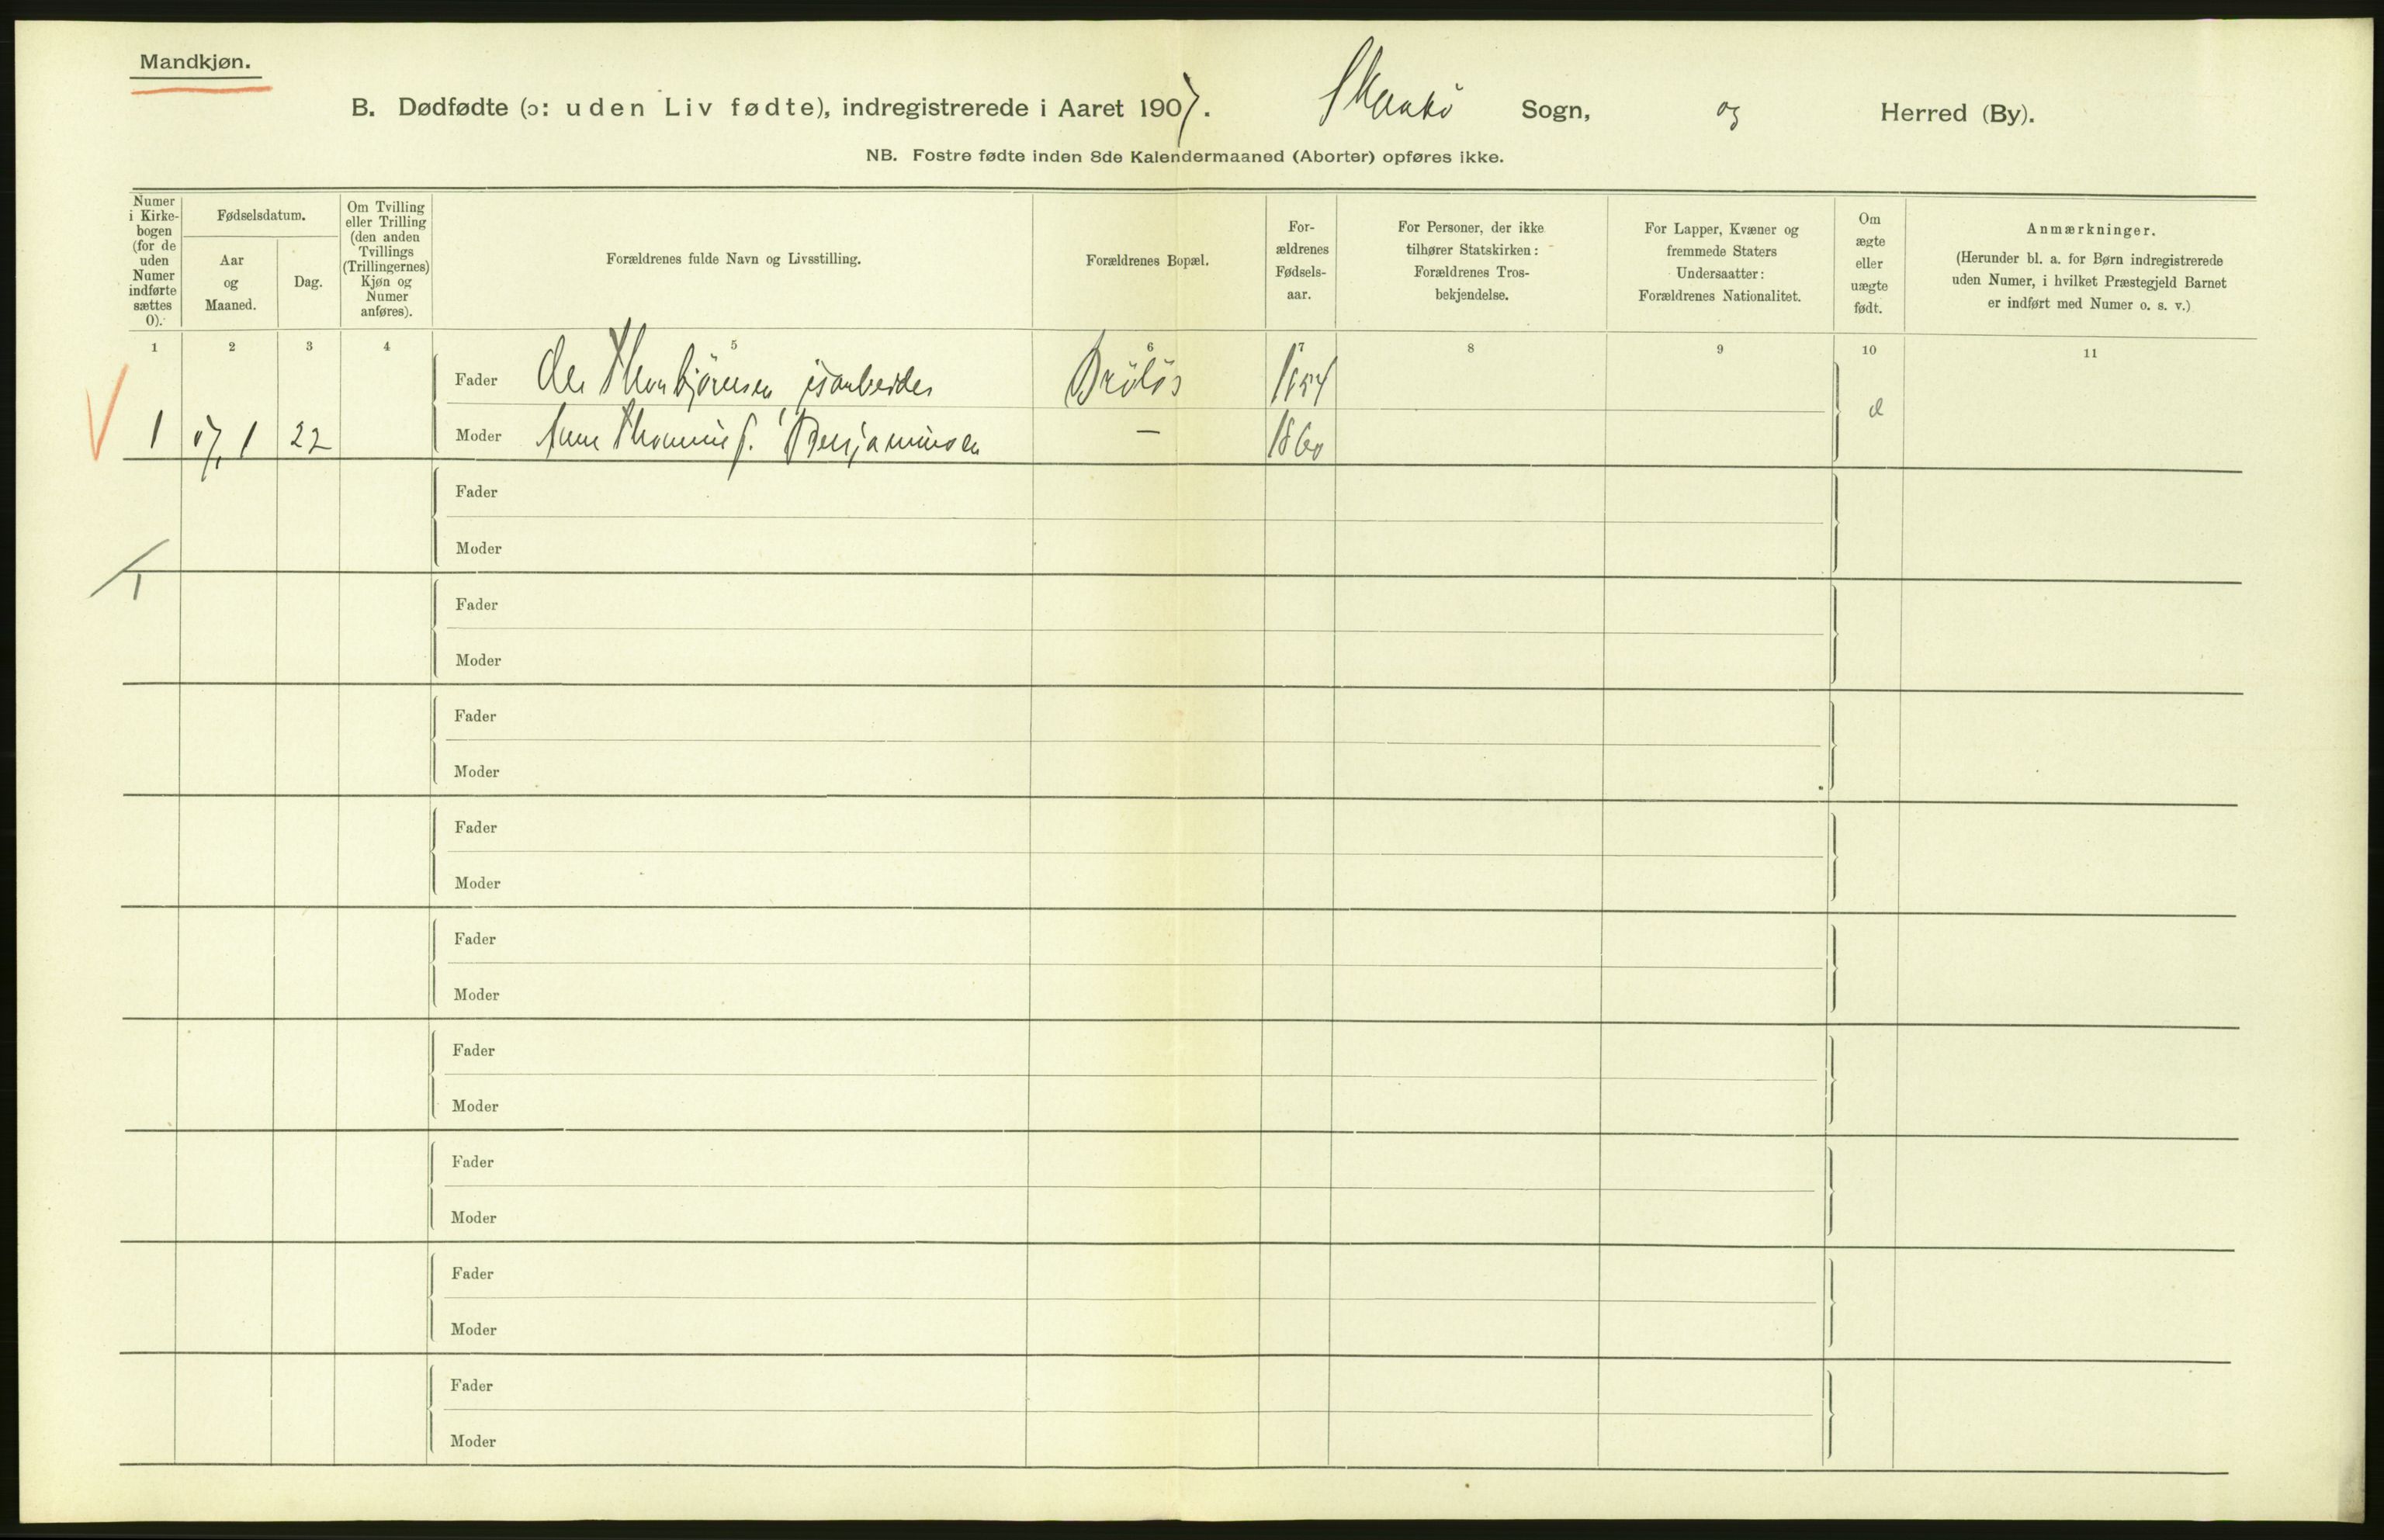 Mandkjøn.
B. Dødfødte (ɔ: uden Liv fødte), indregistrerede i Aaret 1907. Skaatø Sogn, og Herred (By).
NB. Fostre fødte inden 8de Kalendermaaned (Aborter) opføres ikke.
Numer i Kirke- bogen (for de uden Numer indførte sættes 0).
Fødselsdatum.
Aar og Maaned.
Dag.
Om Tvilling eller Trilling (den anden Tvillings (Trillingernes) Kjøn og Numer anføres).
Forældrenes fulde Navn og Livsstilling.
Forældrenes Bopæl.
For- ældrenes Fødsels- aar.
For Personer, der ikke tilhører Statskirken: Forældrenes Tros- bekjendelse.
For Lapper, Kvæner og fremmede Staters Undersaatter: Forældrenes Nationalitet.
Om ægte eller uægte født.
Anmærkninger.
(Herunder bl. a. for Børn indregistrerede uden Numer, i hvilket Præstegjeld Barnet er indført med Numer o. s. v.)
1 2 3 4 5 6 7 8 9 10 11
Fader Ole Thorbjörnsen isarbeider
1 07, 1 22 Moder Anne f. Benjaminsen — 1860
Fader
Moder
Fader
Moder
Fader
Moder
Fader
Moder
Fader
Moder
Fader
Moder
Fader
Moder
Fader
Moder
Fader
Moder